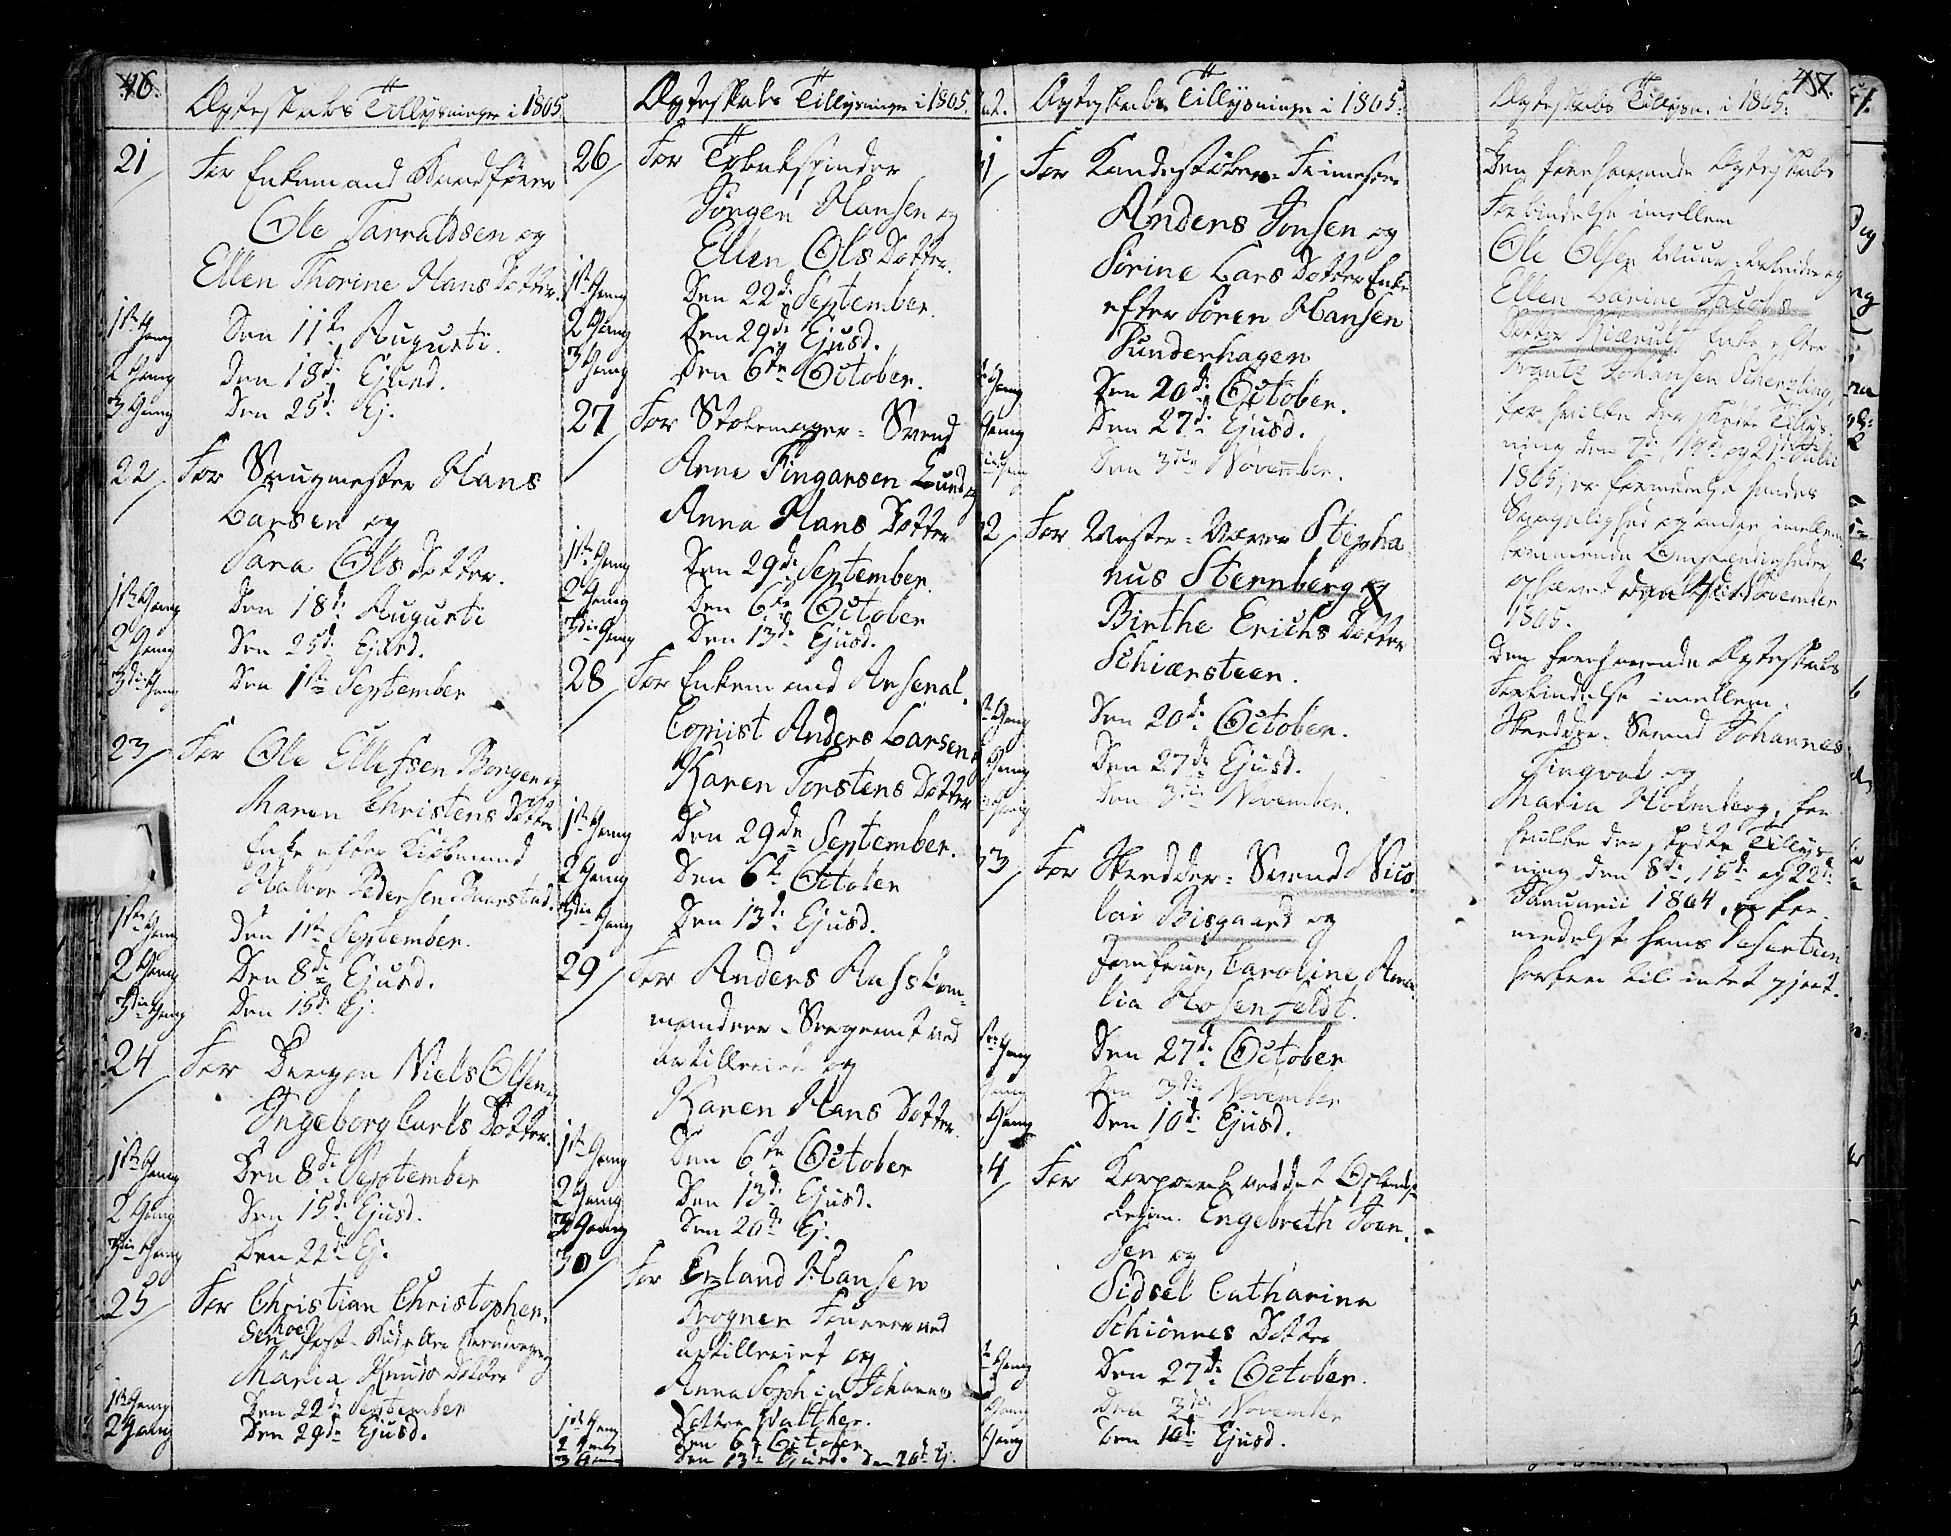 46.
Ægteskabs Tillysninger i 1805.
21 For Enkemand Vandfører
Ole Tarraldsen og
Ellen Thorine Hans Dotter.
1ste Gang Den 11te Augusti.
2 Gang Den 18de Ejusd.
3 Gang Den 25de Ej.
22 For Saugmester Hans
Larsen og
Sara Ols Dotter.
1ste Gang Den 18de Augusti
2 Gang Den 25de Ejusd.
3die Gang Den 1ste September
23 For Ole Ellefssen Borgen og
Maren Christens Dotter
Enke efter Kiøbmand
Halvor Pedersen
1ste Gang Den 1ste September.
2 Gang Den 8de Ejusd.
3die Gang Den 15de Ej.
24 For Niels Olsen
Ingeborg Carls Dotter.
1ste Gang Den 8de September
2 Gang Den 15de Ejusd.
3die Gang Den 22de Ej.
25 For Christian Christopher-
sen Post-
Maria Knuds Dotter
1ste Gang Den 22de September
2 Gang Den 29de Ejusd.
Ægteskabs Tillysninger i 1805.
26 For Tobakspinder
Jørgen Hansen og
Ellen Ols Dotter.
1ste Gang Den 22de September.
2 Gang Den 29de Ejusd.
3 Gang Den 6te October.
27 For Stolemager-Svend
Arne Fingarsen Lund og
Anna Hans Dotter
1ste Gang Den 29de September.
2 Gang Den 6te October
3die Gang Den 13de Ejusd.
28 For Enkemand Arsenal-
Copiist Anders Larsen og
Karen Torstens Dotter
1ste Gang Den 29de September.
2 Gang Den 6te October
3die Gang Den 13de Ejusd.
29 For Anders Aass Com-
mandeer-Sergeant ved
artilleriet og
Karen Hans Dotter.
1ste Gang Den 6te October
2 Gang Den 13de Ejusd.
3 Gang Den 20de Ej.
30 For Erland Hansen
Trogner ved
artilleriet og
Anna Sophia Johannes
Dotter Walther.
1ste Gang Den 6te October
2 Gang
3 Gang Den 13de Ejusd. Den 20de Ej.
47.
Ægteskabs Tillysninger i 1805.
1 For Kandestøber-
Anders Jonsen og
Sørine Lars Dotter Enke
efter Søren Hansen
Sunderhagen
Gang Den 20de October.
Gang Den 27de Ejusd.
Den 3die November.
2 For Mester-Væver Stepha
nus Sternberg og
Birthe Erichs Dotter
Schiærsteen.
Gang Den 20de October.
Gang Den 27de Ejusd.
Gang Den 3die November.
3 For Skrædder-Svend Nico
lai Bisgaard og
Jomfrue Caroline Ama-
lia Hosenfeldt.
Gang Den 27de October
Den 3die November
Gang Den 10de Ejusd.
4 For Korporal ved det
Regim. Engebreth Joen-
sen og
Sidsel Catharina
Schiønnes Dotter
Gang Den 27de October.
Gang Den 3die November
Gang Den 10de Ejusd.
Ægteskabs Tillysn. i 1805.
Den forehavende Ægteskabs
Forbindelse imellem
Ole Olsen Muur-Arbeider og
Ellen Larine Jacobs
Dotter Enke efter
Frantz Johansen
for hvilke der skeede Tillys-
ning den 7de, 14de og 21de Julii
1805, er formedelst hendes
Svagelighed og andre imellem
kommende Omstændigheder
ophævet den 4de November
1805.
Den forehavende Ægteskabs
Forbindelse imellem
Skrædder-Svend Johannes
Tingvol og
Maria Holmberg, for
hvilke der skeedte Tillys-
ning den 8de, 15de og 22de
Januarii 1804, er for-
medelst hans Desertion
herfra til intet gjort.